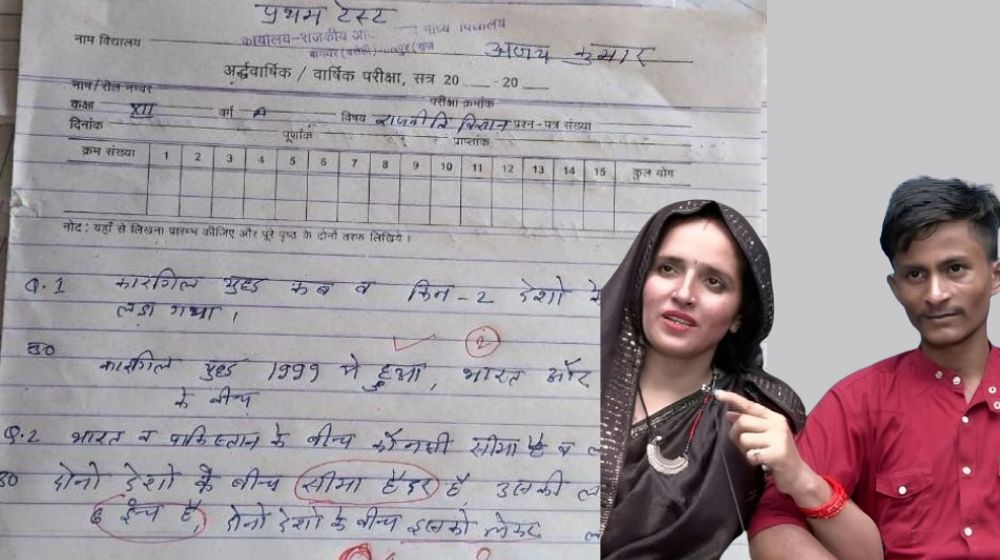 प्रथम टेस्ट
कार्यालय-राजकीय
नाम विद्यालय अजय कुमार
अर्द्धवार्षिक / वार्षिक परीक्षा, सत्र 20 -20
नाम/रोल नम्बर परीक्षा क्रमांक
कक्षा XII वर्ग A विषय राजनीति विज्ञान प्रश्न-पत्र संख्या
दिनांक पूर्णांक प्राप्तांक
क्रम संख्या 1 2 3 4 5 6 7 8 9 10 11 12 13 14 15 कुल योग
नोट : यहाँ से लिखना प्रारम्भ कीजिए और पूरे पृष्ठ के दोनों तरफ लिखिये ।
Q.1 कारगिल युद्ध कब व किन-2 देशो के
लडा गया ।
2
उ0 कारगिल युद्ध 1999 मे हुआ, भारत और
के बीच
Q.2 भारत व पाकिस्तान के बीच कौनसी सीमा है व
उ0 दोनो देशो के बीच सीमा हैदर है, उसकी
6 ईन्च है, दोनो देशो के बीच इसको लेकर